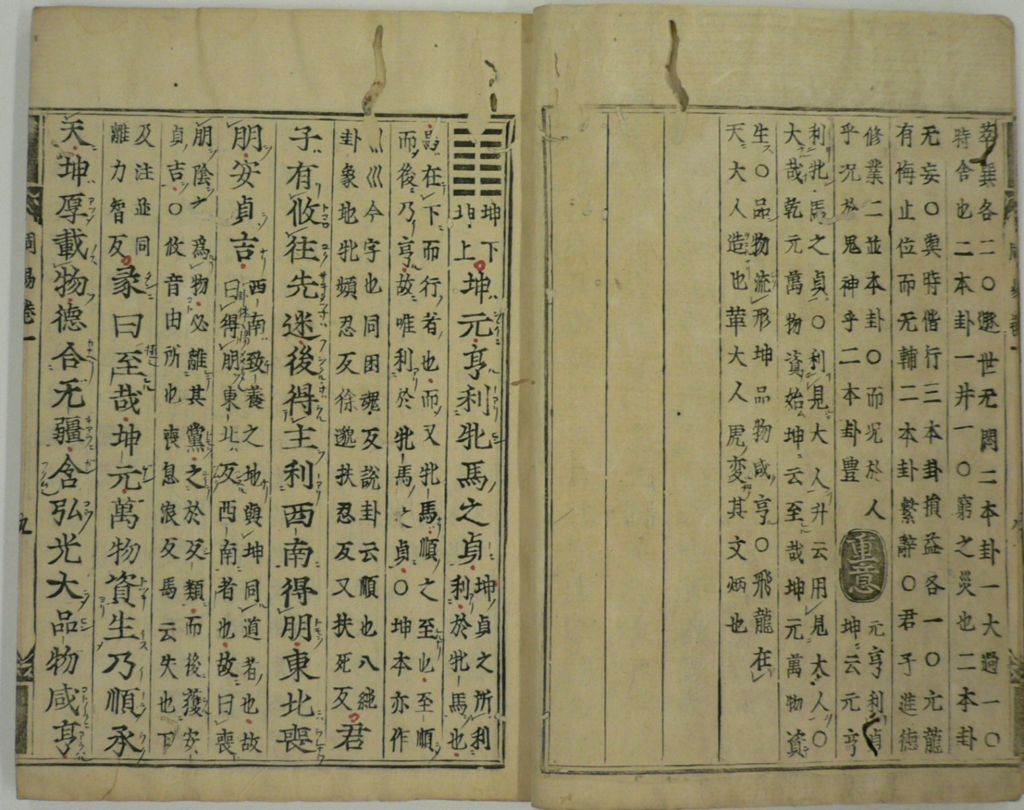 萃巽各二〇遯世无悶二本卦一大過一〇
時舍也二本卦一井一〇窮之災也二本卦
无妄〇與時偕行三本卦損益各一〇亢龍
有悔止位而无輔二本卦繋辭〇君子進德
修業二並本卦〇而況於人
乎況於鬼神乎二本卦豊
重意
元亨利貞
坤云元亨
利牝馬之貞〇利見大人升云用見大人〇
大哉乾元萬物資始坤云至哉坤元萬物資
生〇品物流形坤品物咸亨〇飛龍在
天大人造也革大人虎変其文炳也
䷁
坤下
坤上
坤元亨利牝馬之貞
坤貞之所利
利於牝馬也
馬在下而行者也而又牝馬順之至也至順
而後乃亨故唯利於牝馬之貞〇坤本亦作
巛巛今字也同困魂反說卦云順也八純
卦象地牝頻忍反徐邈扶忍反又扶死反
君
子有攸往先迷後得主利西南得朋東北喪
朋安貞吉
西南致養之地與坤同道者也故
曰得朋東北反西南者也故曰喪
朋陰之為物必離其黨之於反類而後獲安
貞吉〇攸音由所也喪息浪反馬云失也下
及注並同
離力智反
彖曰至哉坤元萬物資生乃順承
天坤厚載物德合无疆含弘光大品物咸亨
周易卷一
九